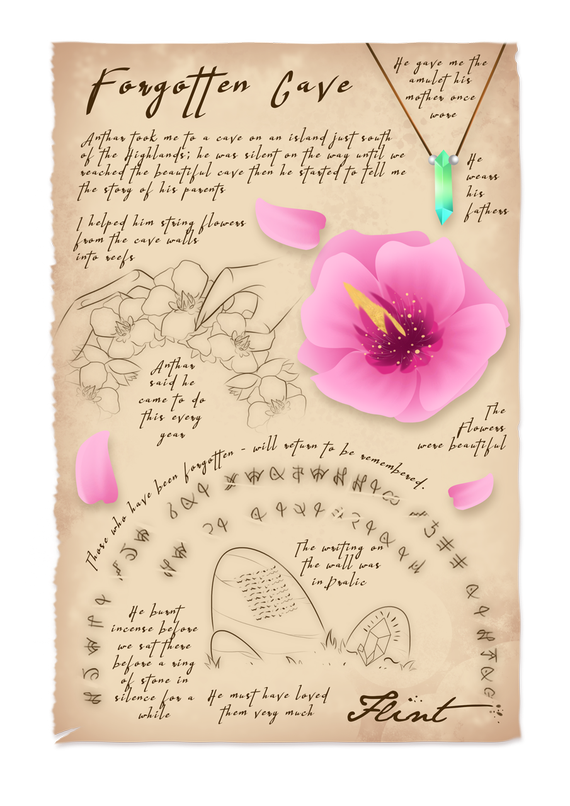 Forgotten Cave
He gave me the
amulet his
mother once
wore
Anthar took me to a cave on an island just south
of the Highlands; he was silent on the way until we
reached the beautiful cave then he started to tell me
the story of his parents
He
wears
his
fathers
I helped him string flowers
from the cave walls
into reefs
Anthar
said he
came to do
this every
year
The
flowers
were beautiful
Those who have been forgotten - will return to be remembered.
The writing on
the wall was
in
He burnt
incense before
we sat there
before a ring
of stone in
silence for a
while
He must have loved
them very much
Flint